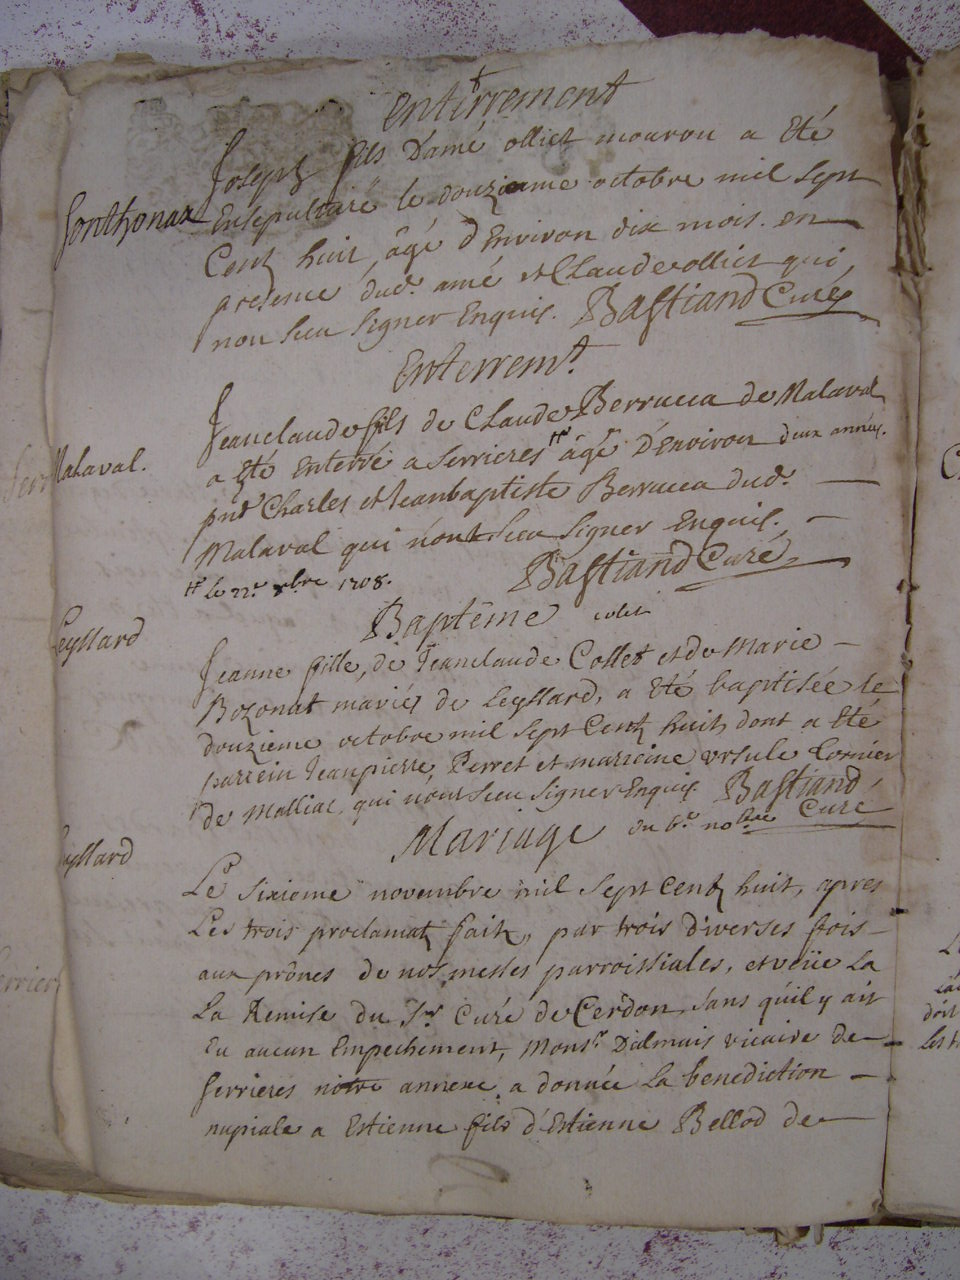 Enterrement
Joseph fils D'amé olliet mourou a Eté
Sonthonax Ensepulturé le douzieme octobre mil sept
Centz huit, âgé d'Environ dix mois. en
presence dud. amé et Claude olliet qui
non sceu signer Enquis. Bastiand Curé
Enterremt.
Jeanclaude fils de Claude Berrucca de Malaval
Malaval. a Eté Enterré a serrieres âgé D'Environ deux années.
pnt Charles et Jeanbaptiste Berrucca dud.
Malaval qui n'ont sceu signer Enquis.
le 22e 8bre 1708. Bastiand Curé
Baptême colet
Leyssard
Jeanne fille, de Jeanclaude Collet et de Marie
Bozonat mariés de Leyssard, a Eté baptisée le
douzieme octobre mil sept Centz huit, dont a Eté
parrein Jeanpierre Perret et marreine ursule Cornier
de Malliac qui n'ont sceu signer Enquis. Bastiand
Mariage du 6e novbre Curé
yssard
Le sixieme novembre mil sept Centz huit, apres
Les trois proclamatz faitz, par trois Diverses fois
aux prônes de nos messes parroissiales, et veüe La
La Remise du Sr Curé de Cerdon sans qu'il y ait
Eu aucun Empechement, Monsr. D'almais vicaire de
serrieres notre annexe a donnée La benediction
nupiale a Estienne fils d'Estienne Bellod de